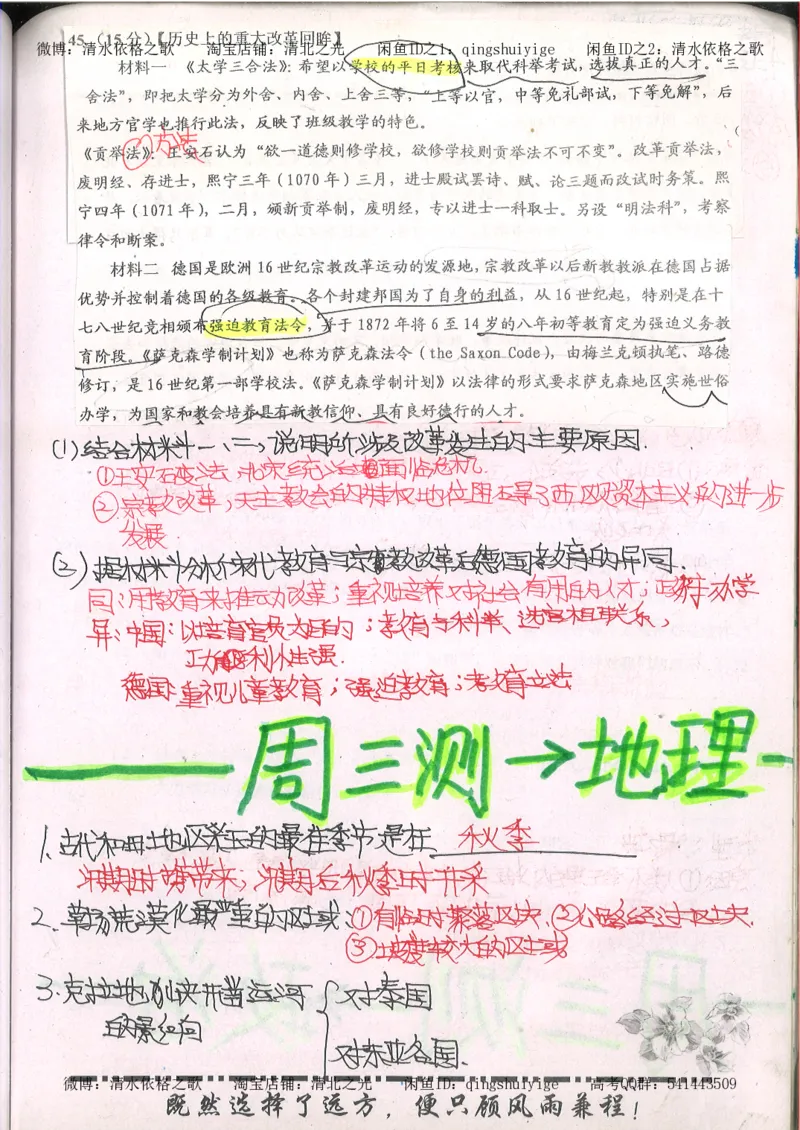 45.（15分）【历史上的重大改革回眸】
微博：清水依格之歌 淘宝店铺：清北之光 闲鱼ID之1：qingshuiyige 闲鱼ID之2：清水依格之歌
材料一 《太学三合法》：希望以学校的平日考核来取代科举考试，选拔真正的人才。“三
舍法”，即把太学分为外舍、内舍、上舍三等，“上等以官，中等免礼部试，下等免解”，后
来地方官学也推行此法，反映了班级教学的特色。
③方法
《贡举法》：王安石认为“欲一道德则修学校，欲修学校则贡举法不可不变”。改革贡举法，
废明经、存进士，熙宁三年（1070年）三月，进士殿试罢诗、赋、论三题而改试时务策。熙
宁四年（1071年），二月，颁新贡举制，废明经，专以进士一科取士。另设“明法科”，考察
律令和断案。
材料二 德国是欧洲16世纪宗教改革运动的发源地，宗教改革以后新教教派在德国占据
优势并控制着德国的各级教育。各个封建邦国为了自身的利益，从16世纪起，特别是在十
七八世纪竞相颁布强迫教育法令，并于1872年将6至14岁的八年初等教育定为强迫义务教
育阶段。《萨克森学制计划》也称为萨克森法令（the Saxon Code），由梅兰克顿执笔、路德
修订，是16世纪第一部学校法。《萨克森学制计划》以法律的形式要求萨克森地区实施世俗
办学，为国家和教会培养具有新教信仰、具有良好德行的人才。
(1)结合材料一、二，说明所涉及改革发生的主要原因.
①王安石变法，北宋统治面临危机.
②宗教改革，天主教会的特权地位阻碍了西欧资本主义的进一步
发展
(2)据材料分析宋代教育与宗教改革后德国教育的异同.
同：用教育来推动改革；重视培养对社会有用的人才；政府主办学
异：中国：以培育官员为目的；教育与科举、选官相联系，
功利性强.
德国：重视儿童教育；强迫教育；教育立法
周三测→地理
1.古代和田地区采玉的最佳季节是在 秋季
汛期时携带来，汛期后秋季时开采
2.草场荒漠化最严重的区域：①有临时聚落区块，②公路经过区块，
③坡度较大的区域
3.克拉地峡开凿运河
的影响
对泰国
对东亚各国.
微博：清水依格之歌 淘宝店铺：清北之光 闲鱼ID：qingshuiyige 高考QQ群：541443509
既然选择了远方，便只顾风雨兼程！